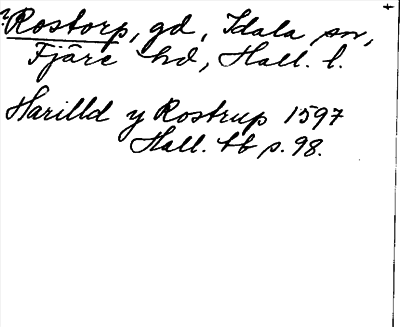 ?Rostorp, gd, Idala sn,
Fjäre hd, Hall. l.
Harilld y Rostrup 1597
Hall. tb s. 98.